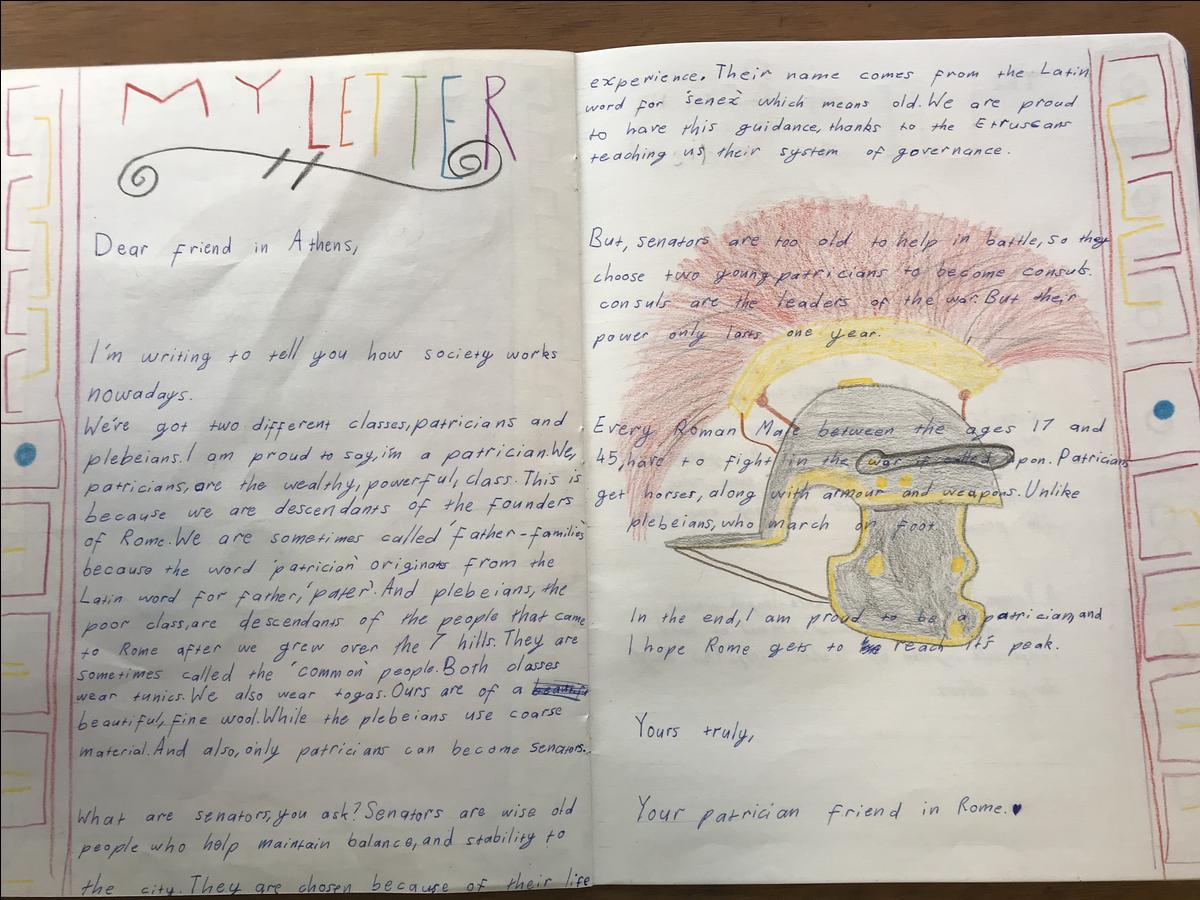 MY LETTER
Dear friend in Athens,
I'm writing to tell you how society works
nowadays.
We've got two different classes, patricians and
plebeians. I am proud to say, i'm a patrician. We,
patricians, are the wealthy, powerful, class. This is
because we are descendants of the founders
of Rome. We are sometimes called 'father-families'
because the word 'patrician' originats from the
Latin word for father, 'pater'. And plebeians, the
poor class, are descendants of the people that came
to Rome after we grew over the 7 hills. They are
sometimes called the 'common' people. Both classes
wear tunics. We also wear togas. Ours are of a
beautiful, fine wool. While the plebeians use coarse
material. And also, only patricians can become senators.
What are senators, you ask? Senators are wise old
people who help maintain balance, and stability to
the city. They are chosen because of their life
experience. Their name comes from the Latin
word for 'senex' which means old. We are proud
to have this guidance, thanks to the Etruscans
teaching us their system of governance.
But, senators are too old to help in battle, so they
choose two young patricians to become consuls.
consuls are the leaders of the war. But their
power only lasts one year.
Every Roman Male between the ages 17 and
45, have to fight in the war if called upon. Patricians
get horses, along with armour and weapons. Unlike
plebeians, who march on foot.
In the end, I am proud to be a patrician, and
I hope Rome gets to reach it's peak.
Yours truly,
Your patrician friend in Rome.